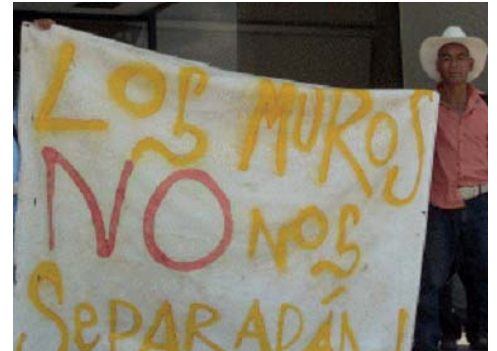 LOS MUROS
NO NOS
SEPARARÁN!